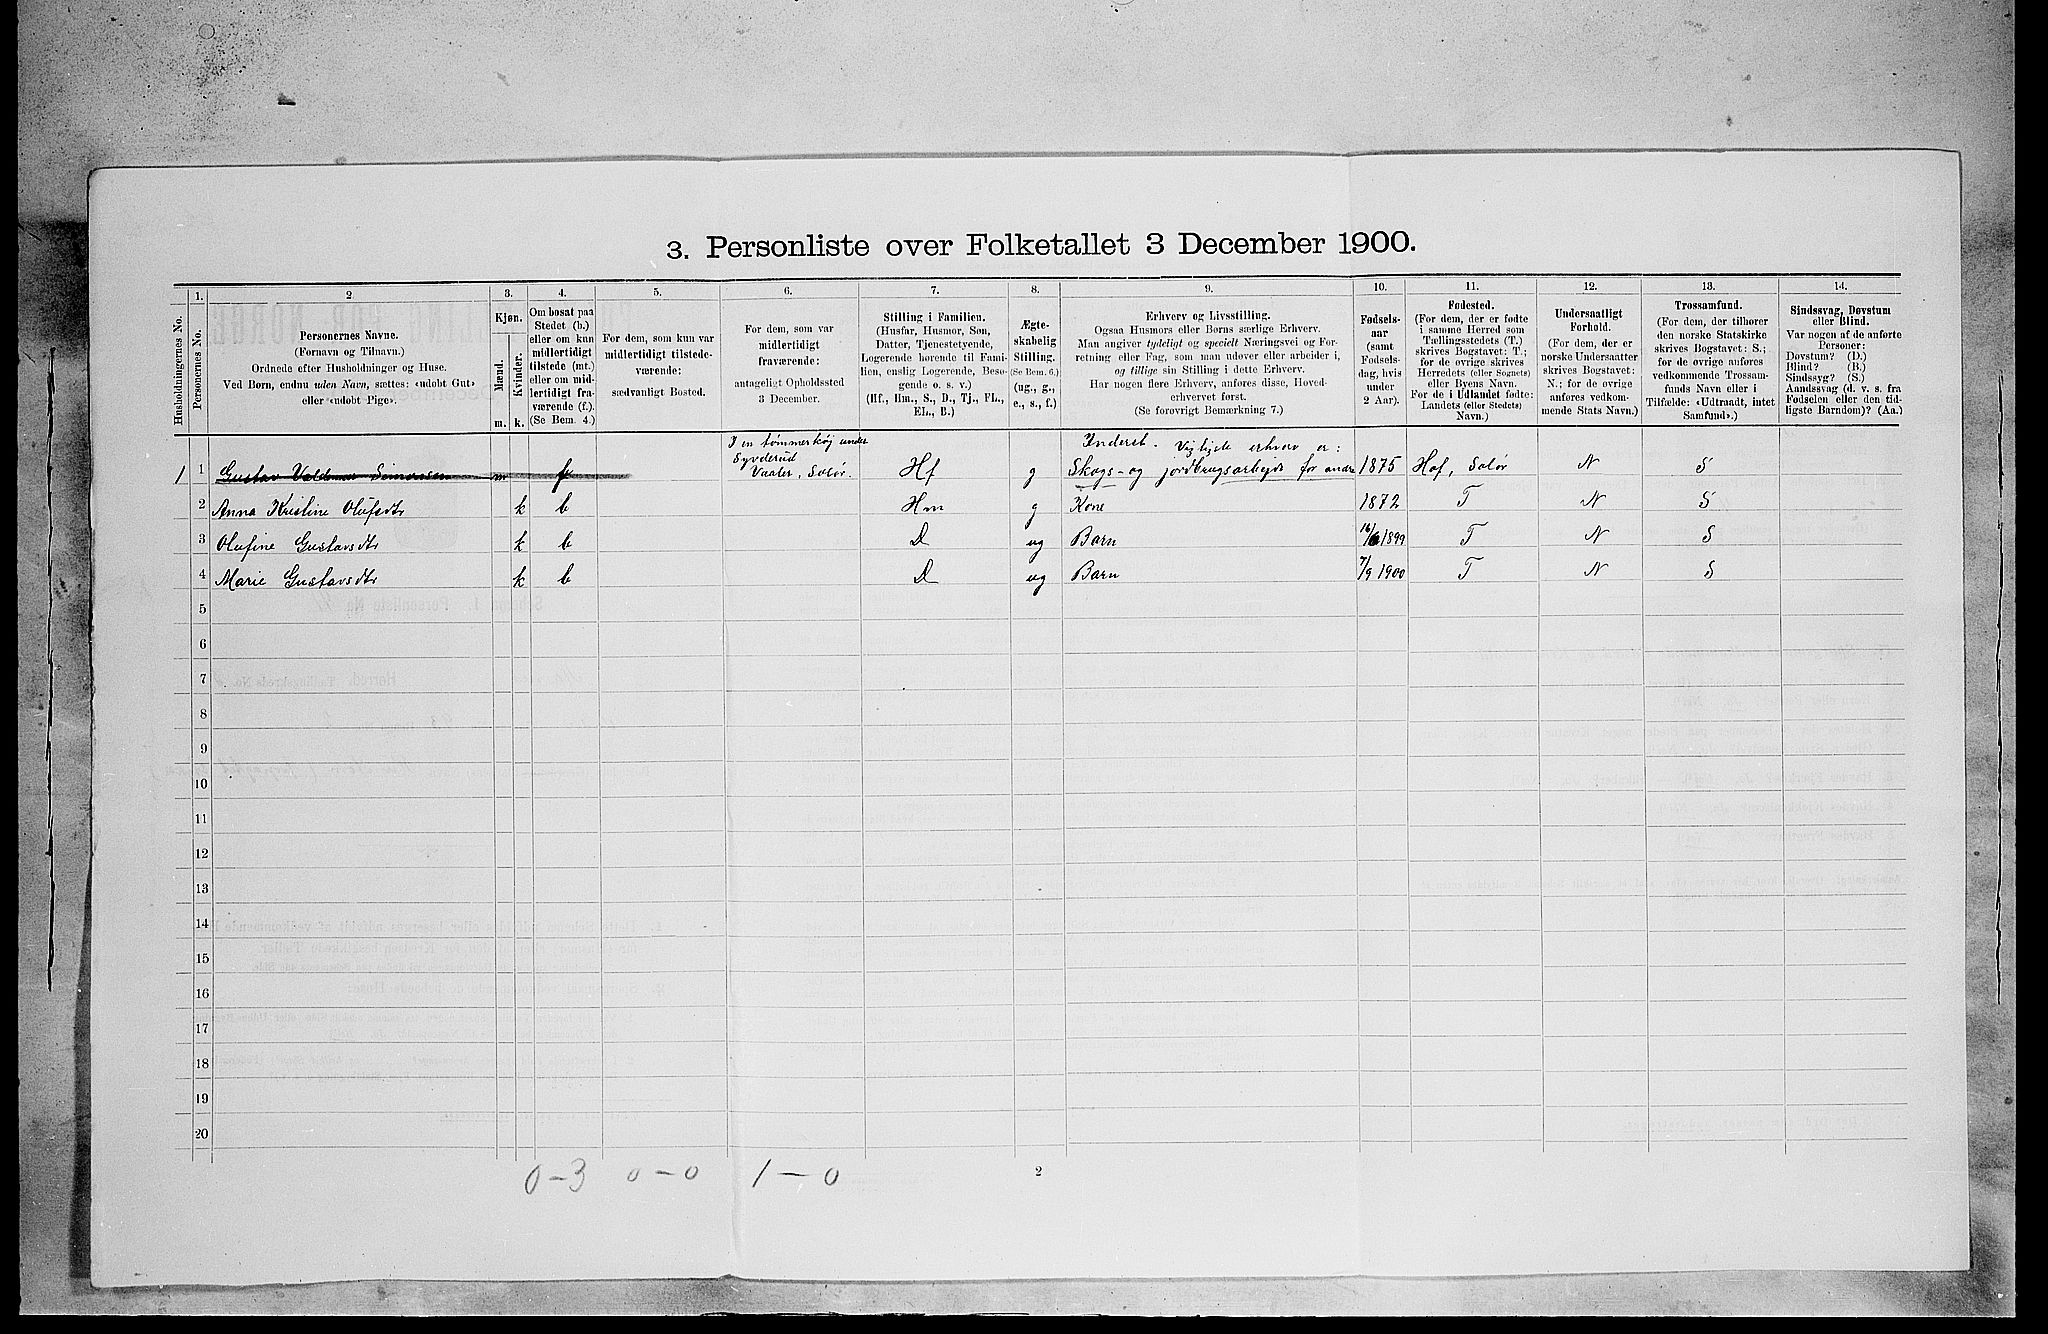 3. Personliste over Folketallet 3 December 1900.
Husholdningernes No.
1.
Personernes No.
2
Personernes Navne.
(Fornavn og Tilnavn.)
Ordnede efter Husholdninger og Huse.
Ved Børn, endnu uden Navn, sættes: «udøbt Gut»
eller «udøbt Pige».
3.
Kjøn.
Mænd.
Kvinder.
m. k.
4.
Om bosat paa
Stedet (b.)
eller om kun
midlertidigt
tilstede (mt.)
eller om mid-
lertidigt fra-
værende (f.).
(Se Bem. 4.)
5.
For dem, som kun var
midlertidigt tilstede-
værende:
sædvanligt Bosted.
6.
For dem, som var
midlertidigt
fraværende:
antageligt Opholdssted
3 December.
7.
Stilling i Familien.
(Husfar, Husmor, Søn,
Datter, Tjenestetyende,
Logerende hørende til Fami-
lien, enslig Logerende, Besø-
gende o. s. v.)
(Hf., Hm., S., D., Tj., FL.,
EL., B.)
8.
Ægte-
skabelig
Stilling.
(Se Bem. 6.)
(ug., g.,
e., s., f.)
9.
Erhverv og Livsstilling.
Ogsaa Husmors eller Børns særlige Erhverv.
Man angiver tydeligt og specielt Næringsvei og For-
retning eller Fag, som man udøver eller arbeider i,
og tillige sin Stilling i dette Erhverv.
Har nogen flere Erhverv, anføres disse, Hoved-
erhvervet først.
(Se forøvrigt Bemærkning 7.)
10.
Fødsels-
aar
(samt
Fødsels-
dag, hvis
under
2 Aar).
11.
Fødested.
(For dem, der er fødte
i samme Herred som
Tællingsstedets (T.)
skrives Bogstavet: T.;
for de øvrige skrives
Herredets (eller Sognets)
eller Byens Navn.
For de i Udlandet fødte:
Landets (eller Stedets)
Navn.)
12.
Undersaatligt
Forhold.
(For dem, der er
norske Undersaatter
skrives Bogstavet:
N.; for de øvrige
anføres vedkom-
mende Stats Navn.)
13.
Trossamfund.
(For dem, der tilhører
den norske Statskirke
skrives Bogstavet: S.;
for de øvrige anføres
vedkommende Trossam-
funds Navn eller i
Tilfælde: «Udtraadt, intet
Samfund».)
14.
Sindssvag, Døvstum
eller Blind.
Var nogen af de anførte
Personer:
Døvstum? (D.)
Blind? (B.)
Sindssyg? (S.)
Aandssvag (d. v. s. fra
Fødselen eller den tid-
ligste Barndom)? (Aa.)
1 1 Gustav Valdemar Simonsen m f I en tømmerkøj under Syvderud Vaaler, Solør. Hf g Inderst. Vigtigste erhverv er: Skogs- og jordbrugsarbejde for andre 1875 Hof, Solør N S
2 Anna Kristine Olufsdtr k b Hm g Kone 1872 T N S
3 Olufine Gustavsdtr k b D ug Barn 1899 T N S
4 Marie Gustavsdtr k b D ug Barn 7/9 1900 T N S
5
6
7
8
9
10
11
12
13
14
15
16
17
18
19
20
0-3 0-0 1-0 2